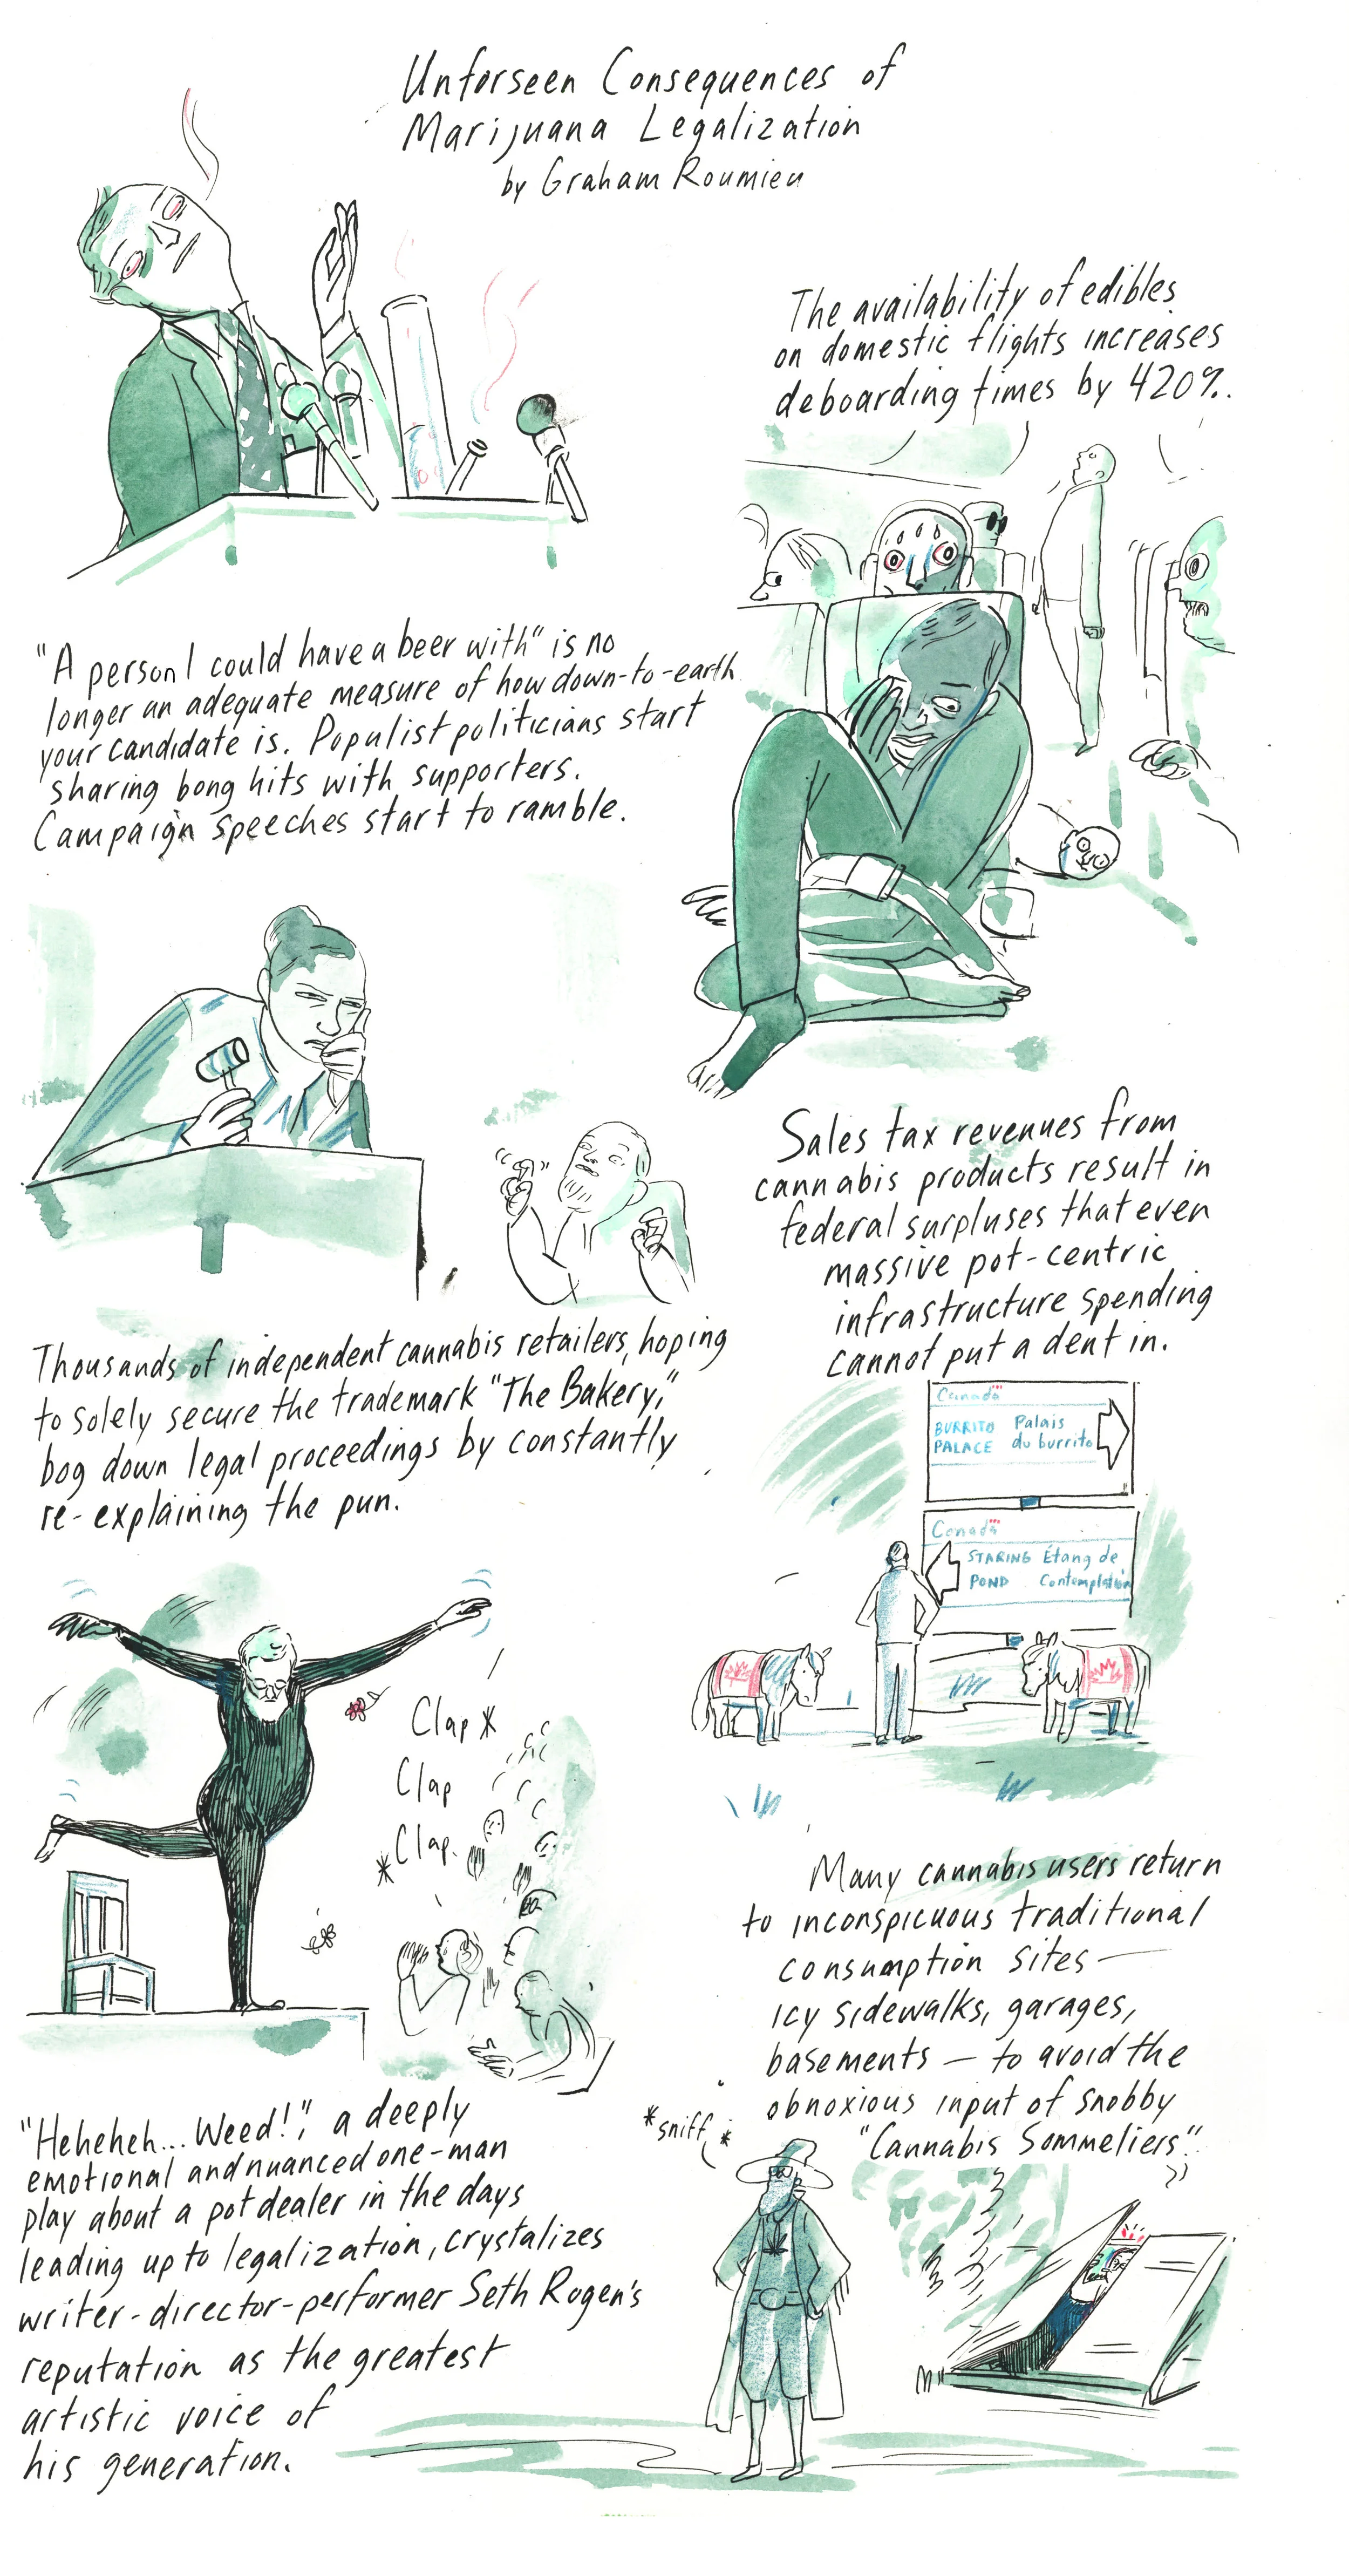 Unforseen Consequences of
Marijuana Legalization
by Graham Roumieu
"A person I could have a beer with" is no
longer an adequate measure of how down-to-earth
your candidate is. Populist politicians start
sharing bong hits with supporters.
Campaign speeches start to ramble.
The availability of edibles
on domestic flights increases
deboarding times by 420%.
Thousands of independent cannabis retailers, hoping
to solely secure the trademark "The Bakery,"
bog down legal proceedings by constantly
re-explaining the pun.
Sales tax revenues from
cannabis products result in
federal surpluses that even
massive pot-centric
infrastructure spending
cannot put a dent in.
Canada
BURRITO Palais
PALACE du burrito
Canada
STARING Étang de
POND Contemplation
Clap *
Clap
* Clap.
"Heheheh... Weed!", a deeply
emotional and nuanced one-man
play about a pot dealer in the days
leading up to legalization, crystalizes
writer-director-performer Seth Rogen's
reputation as the greatest
artistic voice of
his generation.
Many cannabis users return
to inconspicuous traditional
consumption sites —
icy sidewalks, garages,
basements — to avoid the
obnoxious input of snobby
"Cannabis Sommeliers".
*sniff*